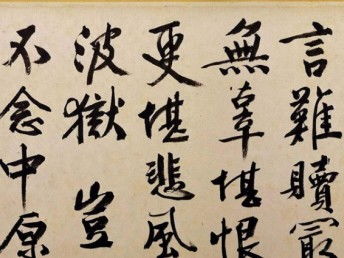 言難贖最
無辜堪恨
更堪悲風
波獄豈
不念中原